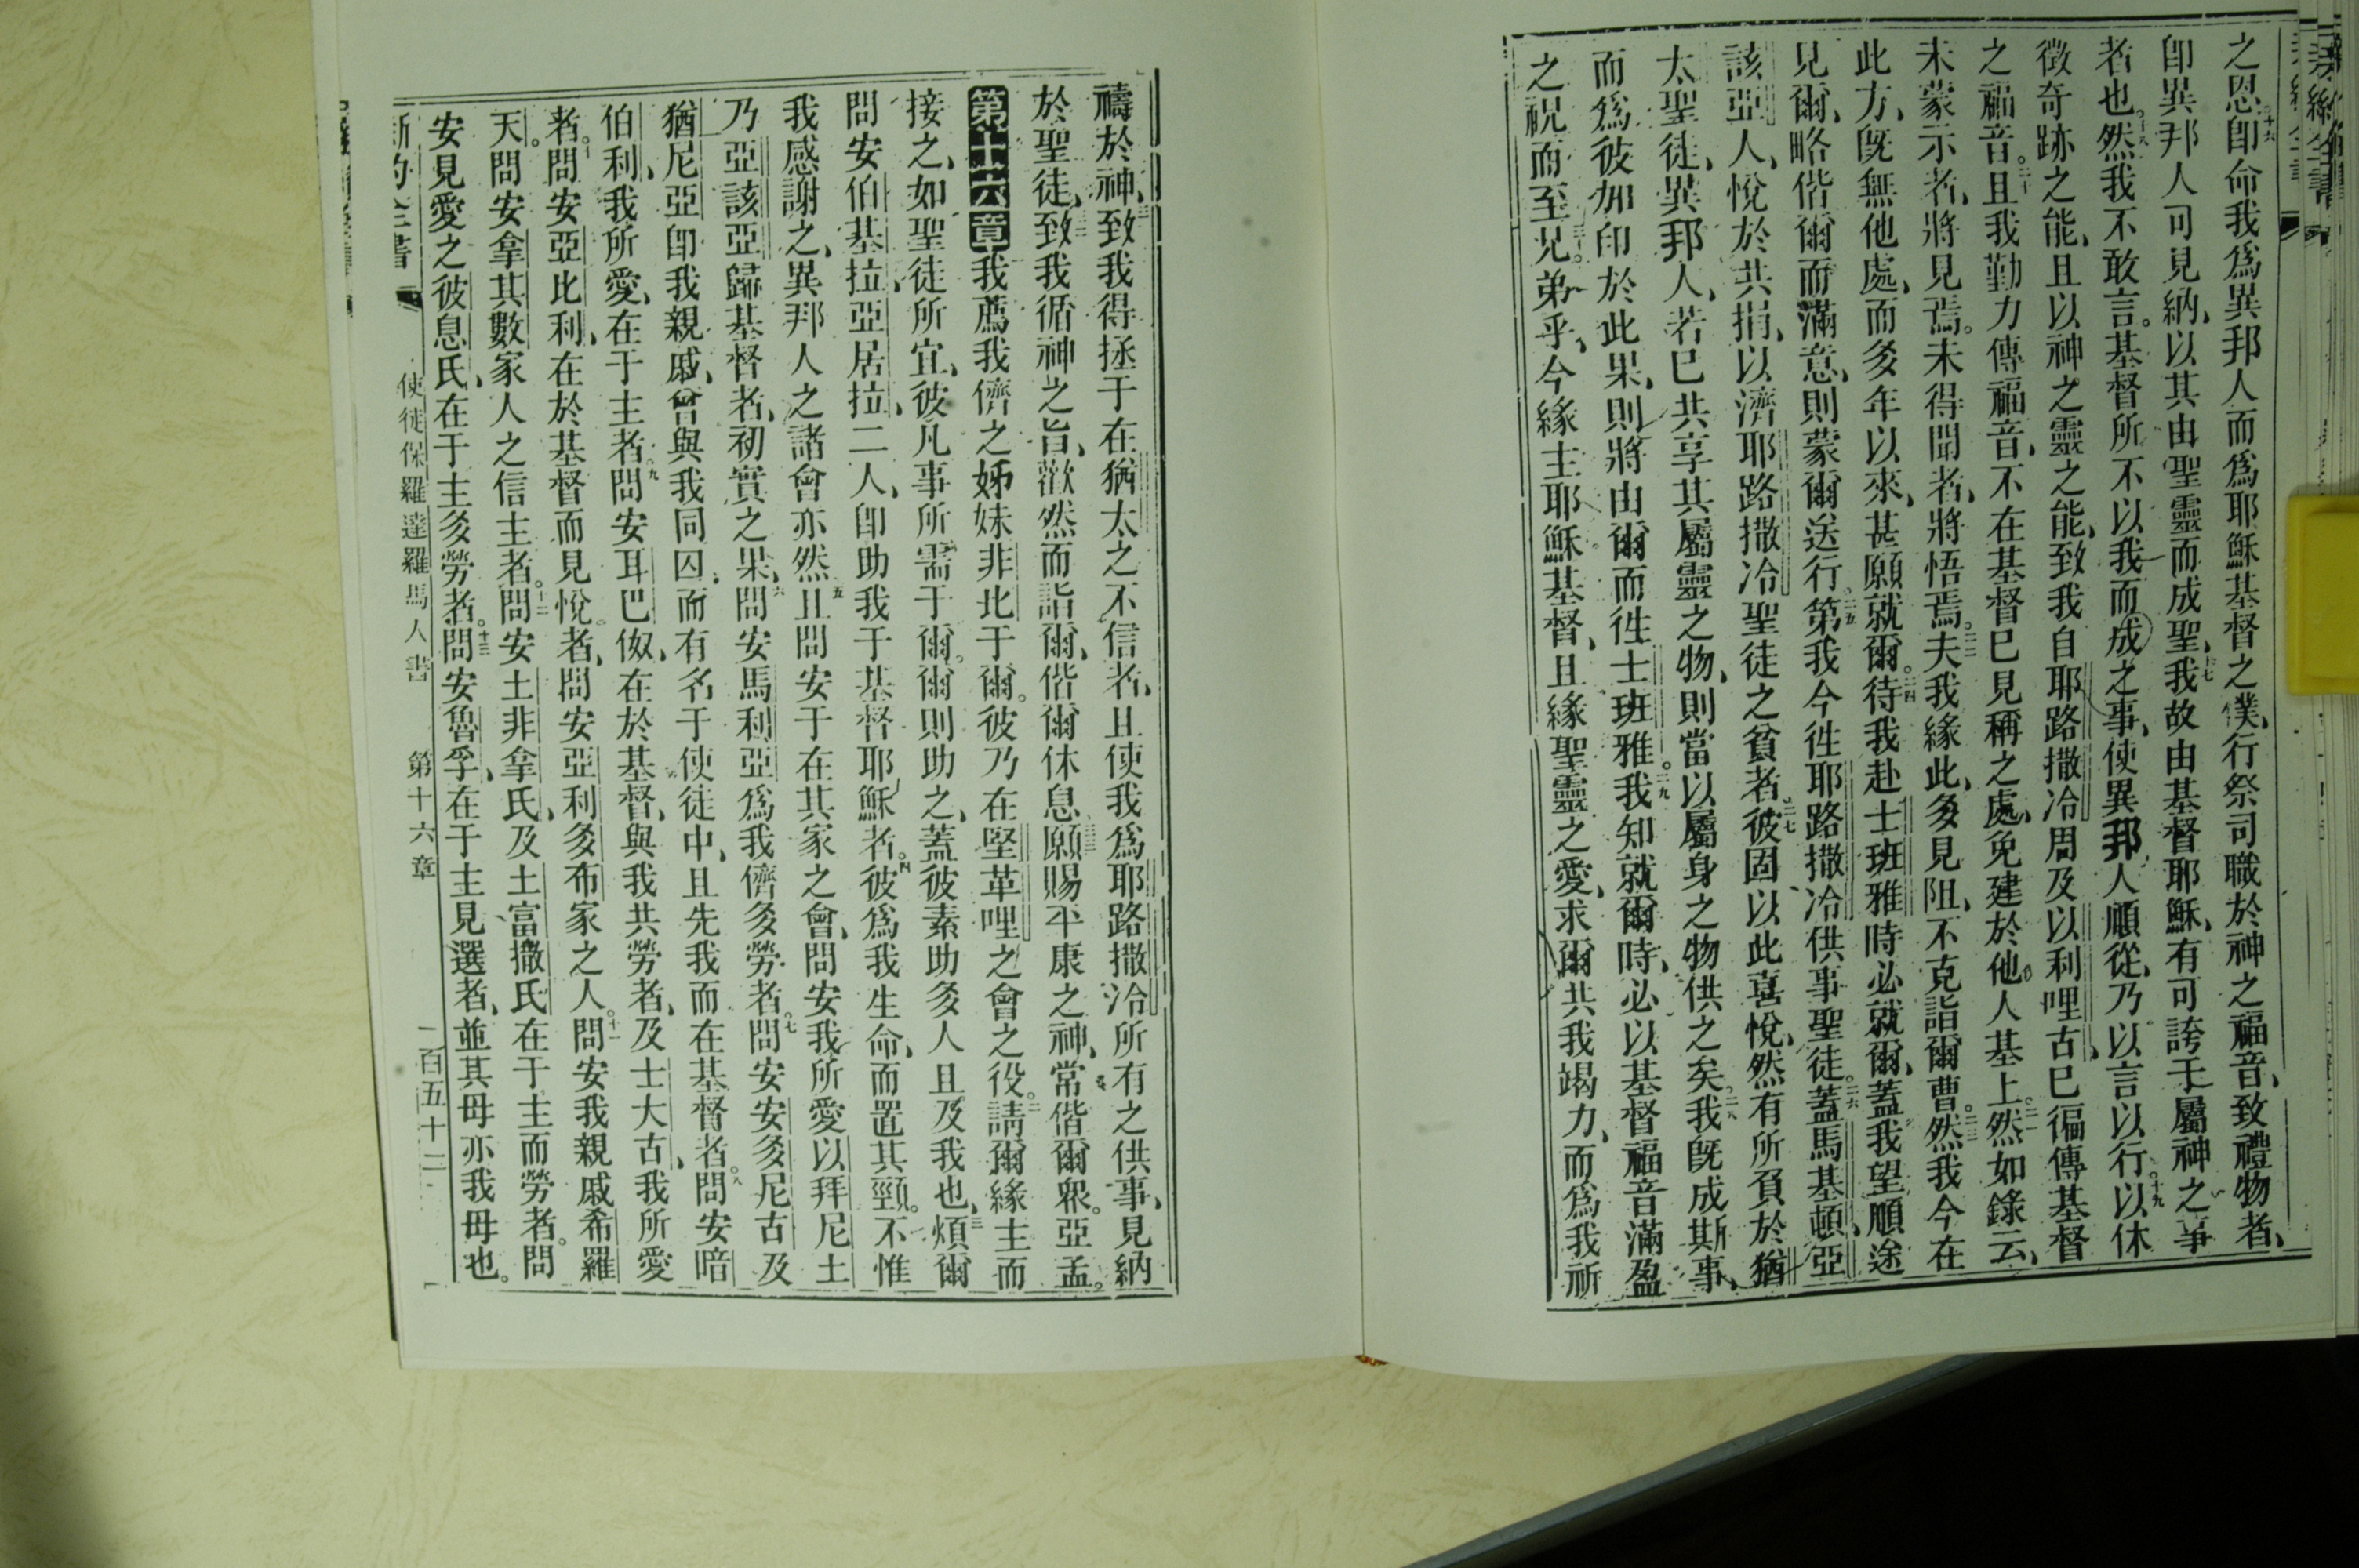 之恩、十六卽命我爲異邦人而爲耶穌基督之僕、行祭司職於神之福音、致禮物者、
卽異邦人可見納、以其由聖靈而成聖、十七我故由基督耶穌、有可誇于屬神之事
者也。十八然我不敢言。基督所不以我而成之事、使異邦人順從、乃以言以行。十九以休
徵奇跡之能、且以神之靈之能、致我自耶路撒冷周及以利哩古、已徧傳基督
之福音。二十且我勤力傳福音、不在基督已見稱之處、免建於他人基上。二一然如錄云、
未蒙示者、將見焉。未得聞者、將悟焉。二二夫我緣此、多見阻、不克詣爾曹。二三然我今在
此方、旣無他處、而多年以來、甚願就爾。二四待我赴士班雅時必就爾、蓋我望順途
見爾、略偕爾而滿意、則蒙爾送行。二五第我今往耶路撒冷供事聖徒。二六蓋馬基頓、亞
該亞人、悅於共捐、以濟耶路撒冷聖徒之貧者、二七彼固以此喜悅、然有所負於猶
太聖徒、異邦人、若已共享其屬靈之物、則當以屬身之物供之矣。二八我旣成斯事、
而爲彼加印於此果、則將由爾而往士班雅。二九我知就爾時、必以基督福音滿盈
之祝而至。三十兄弟乎、今緣主耶穌基督、且緣聖靈之愛、求爾共我竭力、而爲我祈
禱於神、三一致我得拯于在猶太之不信者、且使我爲耶路撒冷所有之供事、見納
於聖徒、三二致我循神之旨、歡然而詣爾、偕爾休息。三三願賜平康之神、常偕爾衆。亞孟。
第十六章我薦我儕之姊妹非比于爾。彼乃在堅革哩之會之役。二請爾緣主而
接之、如聖徒所宜、彼凡事所需于爾。爾則助之、蓋彼素助多人且及我也、三煩爾
問安伯基拉、亞居拉、二人、卽助我于基督耶穌者。四彼爲我生命、而置其頸。不惟
我感謝之、異邦人之諸會亦然。五且問安于在其家之會、問安我所愛以拜尼士
乃亞該亞歸基督者、初實之果、六問安馬利亞爲我儕多勞者。七問安安多尼古及
猶尼亞卽我親戚、曾與我同囚、而有名于使徒中、且先我而在基督者。八問安暗
伯利、我所愛、在于主者。九問安耳巴伮、在於基督、與我共勞者、及士大古、我所愛
者。十問安亞比利、在於基督而見悅者、問安亞利多布家之人。十一問安我親戚希羅
天。問安拿其數家人之信主者。十二問安土非拿氏、及土富撒氏在于主而勞者。問
安見愛之彼息氏、在于主多勞者。十三問安魯孚、在于主見選者、並其母亦我母也。
新約全書 使徒保羅達羅馬人書 第十六章 一百五十二